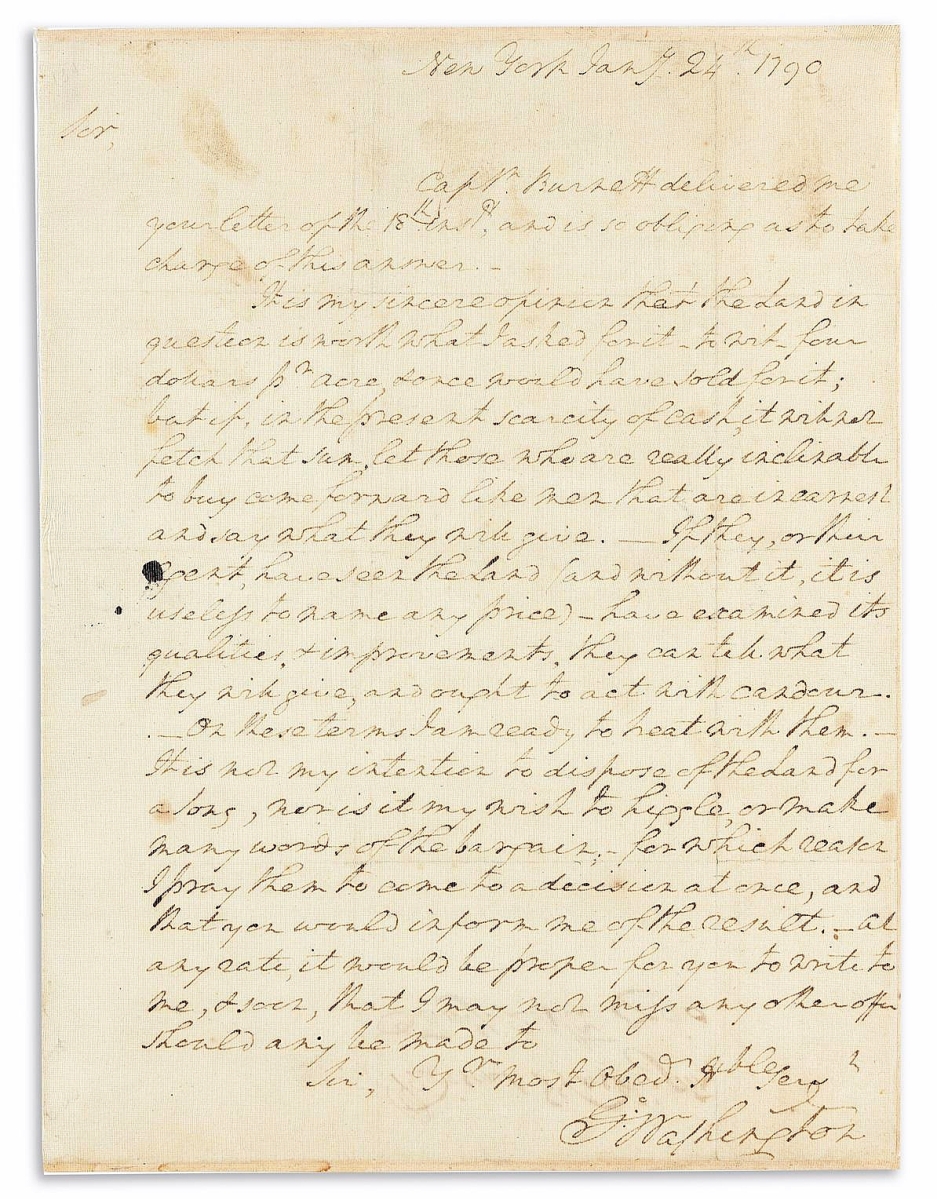 New York Jany. 24th. 1790
Sir,
Captn. Burnett delivered me
your letter of the 18th inst, and is so obliging as to take
charge of this answer. –
It is my sincere opinion that the Land in
question is worth what I asked for it – to wit – four
dollars pr. acre, & once would have sold for it;
but if, in the present scarcity of cash, it will not
fetch that sum, let those who are really inclinable
to buy come forward like men that are in earnest
and say what they will give. — If they, or their
agent, have seen the Land (and without it, it is
useless to name any price) – have examined its
qualities, & improvements, they can tell what
they will give, and ought to act with candour.
. – On these terms I am ready to treat with them. –
It is not my intention to dispose of the Land for
a song, nor is it my wish to higgle, or make
many words of the bargain; – for which reason
I pray them to come to a decision at once, and
that you would inform me of the result. – at
any rate, it would be proper for you to write to
me, & soon, that I may not miss any other offer
should any be made to
Sir, Yr most Obedt. Hble Servt
Go: Washington